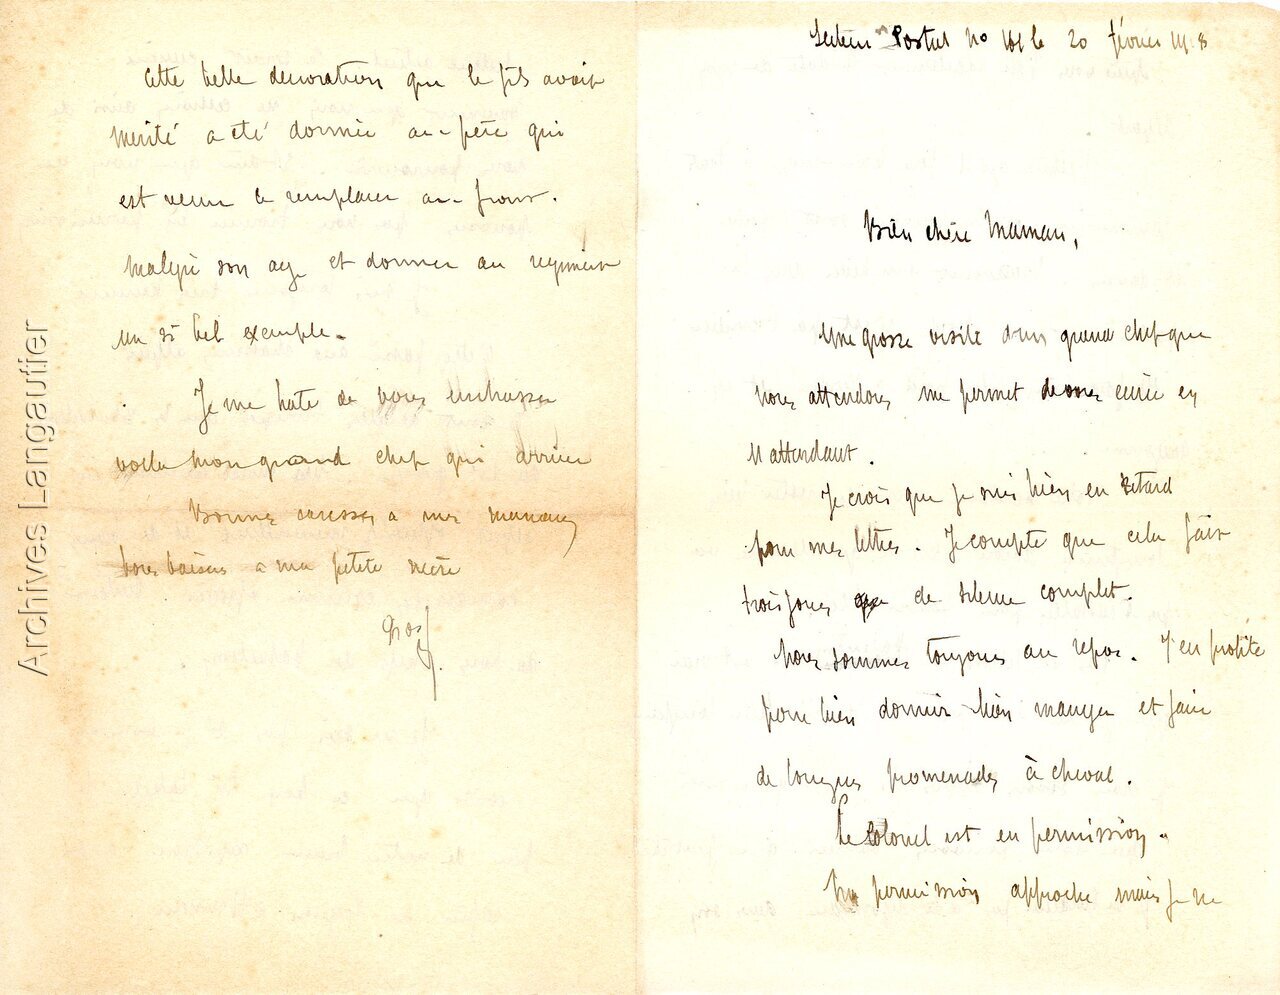 Secteur Postal No 161 le 20 février 1918
Bien chère Maman,
Une grosse visite d'un grand chef que
nous attendons me permet de vous écrire en
l'attendant.
Je crois que je suis bien en retard
pour mes lettres. Je compte que cela fait
trois jours de silence complet.
Nous sommes toujours au repos. J'en profite
pour bien dormir bien manger et faire
de longues promenades à cheval.
Le Colonel est en permission.
Ma permission approche mais je ne
Cette belle décoration que le fils avait
mérité a été donnée au père qui
est venu le remplacer au front.
Malgré son age et donner au regiment
un si bel exemple.
Je me hate de vous embrasser
voila mon grand chef qui arrive
Bonnes caresses a mes mamans
bons baisers a ma petite mère
Archives Langautier